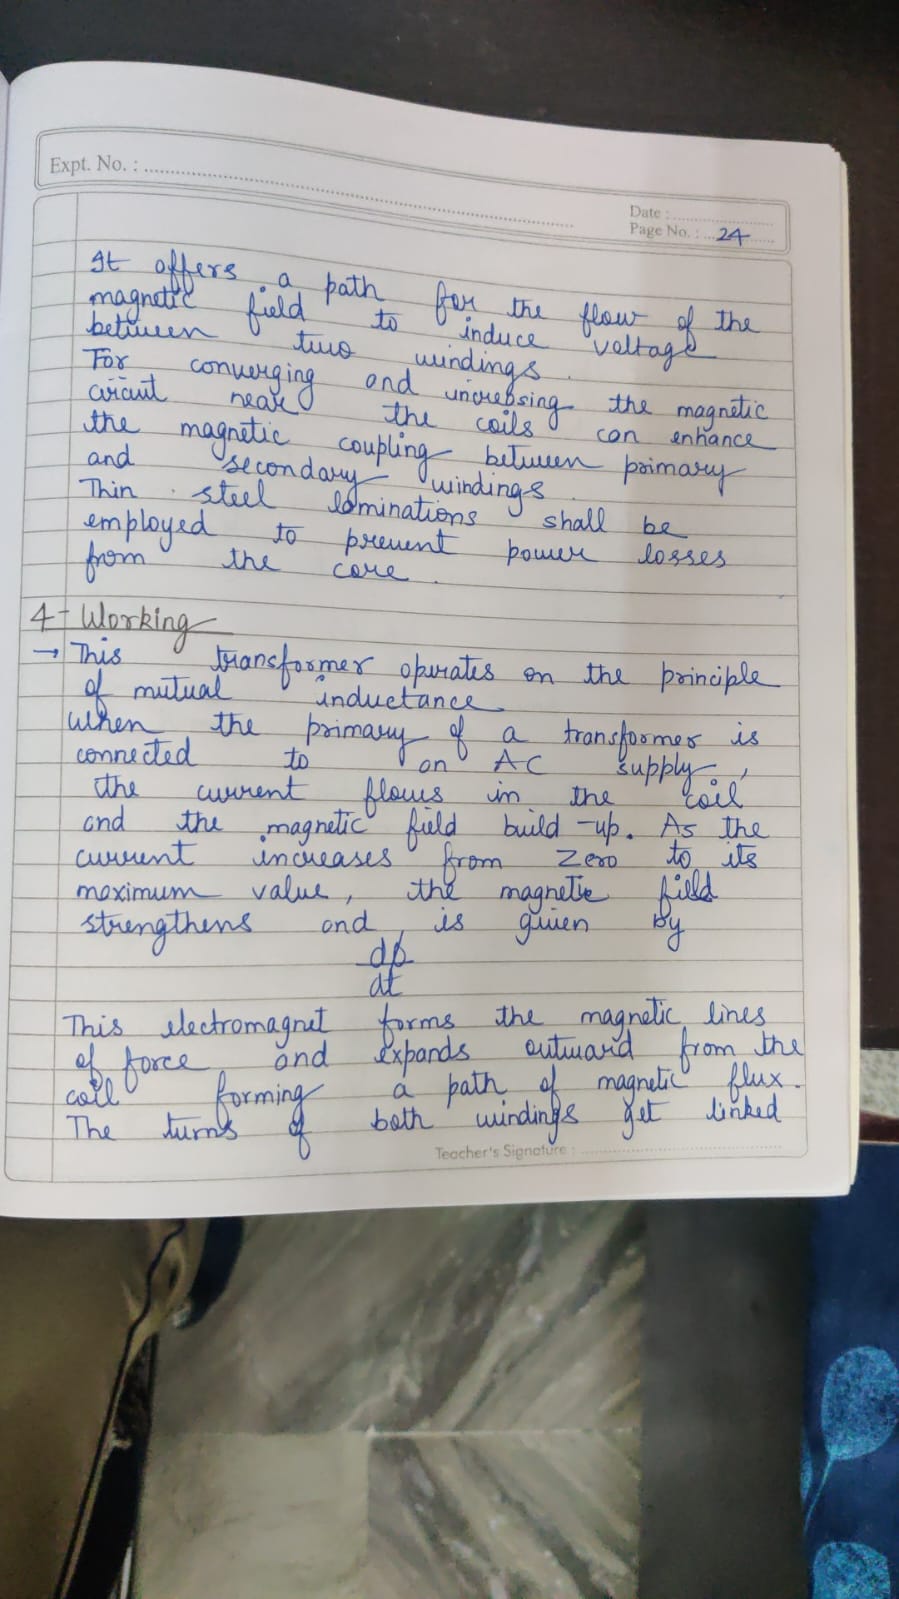 Expt. No. :
Date :
Page No. : 24
It offers a path for the flow of the
magnetic field to induce voltage
between two windings.
For converging and increasing the magnetic
circuit near the coils can enhance
the magnetic coupling between primary
and secondary windings.
Thin steel laminations shall be
employed to prevent power losses
from the core.
4- Working
→ This transformer operates on the principle
of mutual inductance.
When the primary of a transformer is
connected to an AC supply,
the current flows in the coil
and the magnetic field build-up. As the
current increases from zero to its
maximum value, the magnetic field
strengthens and is given by
dϕ
dt
This electromagnet forms the magnetic lines
of force and expands outward from the
coil forming a path of magnetic flux.
The turns of both windings get linked
Teacher's Signature :